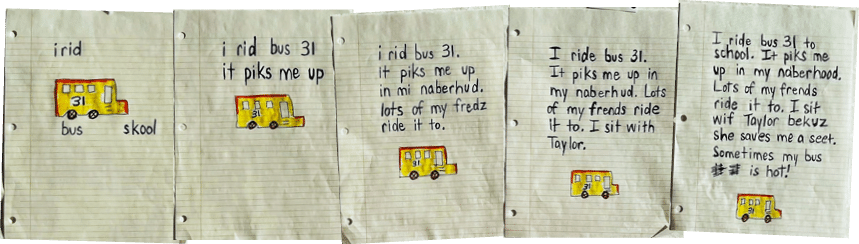 i rid
31
bus skool
i rid bus 31
it piks me up
31
i rid bus 31.
it piks me up
in mi naberhud.
lots of my fredz
ride it to.
31
I ride bus 31.
It piks me up in
my naberhud. Lots
of my frends ride
it to. I sit with
Taylor.
31
I ride bus 31 to
school. It piks me
up in my naberhood.
Lots of my frends
ride it to. I sit
wif Taylor bekuz
she saves me a seet.
Sometimes my bus
is hot!
31